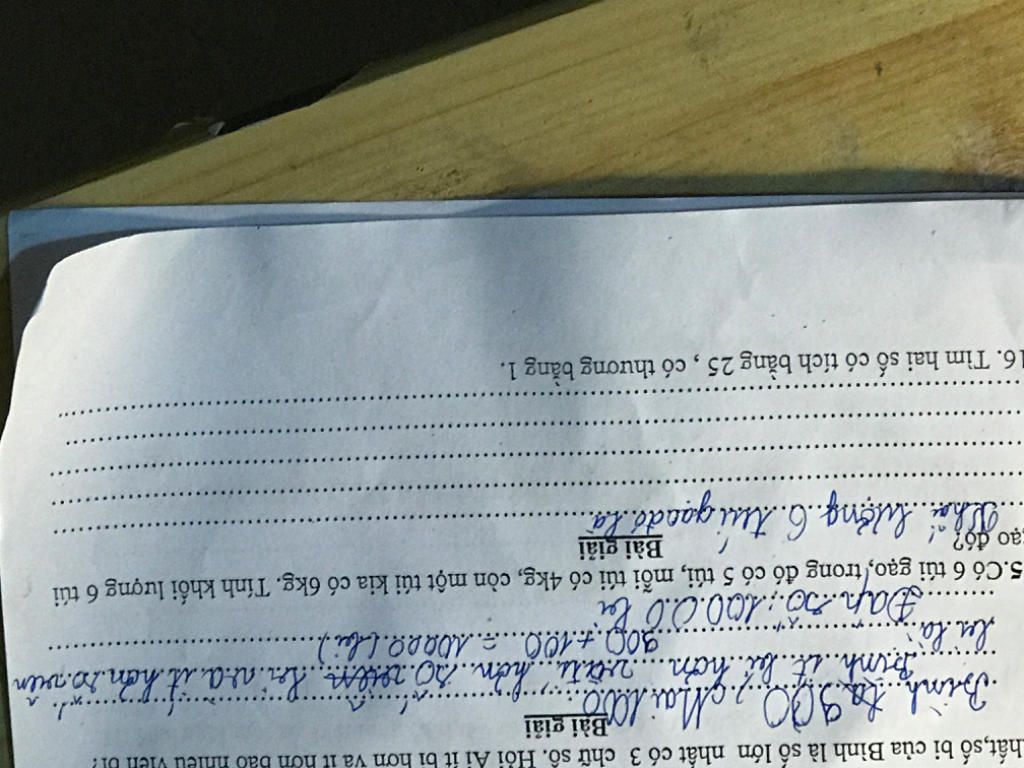 hất,số bi của Bình là số lớn nhất có 3 chữ số. Hỏi Ai ít bi hơn và ít hơn bao nhiêu viên bi?
Bài giải
Bình là 900, Mai 1000
Bình ít bi hơn và hơn số bi ít hơn số viên
bi là
900 + 100 = 10000 (bi)
Đáp số: 10000 bi
5.Có 6 túi gạo, trong đó có 5 túi, mỗi túi có 4kg, còn một túi kia có 6kg. Tính khối lượng 6 túi
gạo đó?
Bài giải
Khối lượng 6 túi gạo đó là
16. Tìm hai số có tích bằng 25 , có thương bằng 1.